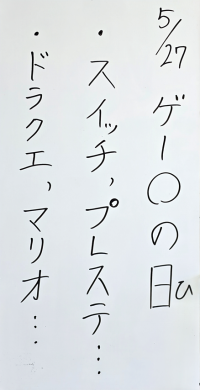 5/27 ゲー〇の日ひ
・スイッチ,プレステ…
・ドラクエ,マリオ…